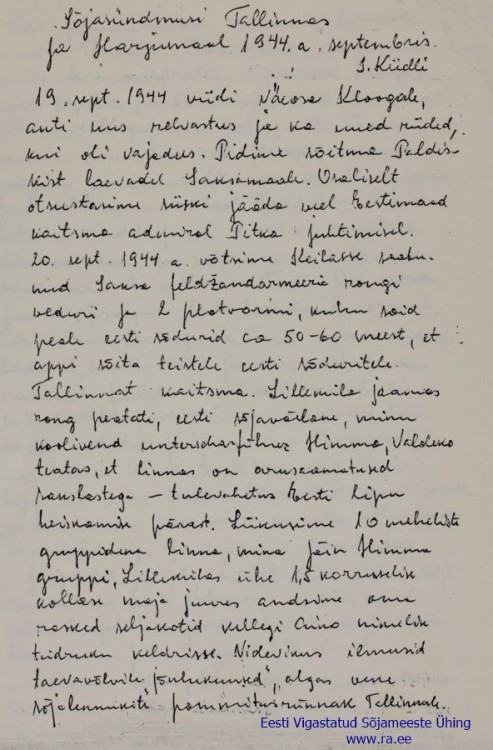 Sõjasündmusi Tallinnas
ja Harjumaal 1944.a. septembris.
J. Kiidli
19. sept. 1944 viidi väeosa Kloogale,
anti uus relvastus ja ka uued riided,
kui oli vajadus. Pidime sõitma Paldis-
kist laevadel Saksamaale. Osaliselt
otsustasime siiski jääda veel Eestimaad
kaitsma admiral Pitka juhtimisel.
20. sept. 1944 a. võtsime Keilasse saabu-
nud Saksa feldžandarmeeria rongi
veduri ja 2 platvormi, kuhu said
peale eesti sõdurid ca 50-60 meest, et
appi sõita teistele eesti sõduritele
Tallinnat kaitsma. Lilleküla jaamas
rong peatati, eesti sõjaväelane, minu
koolivend unterscharführer Himma, Valdeko
teatas, et linnas on arusaamatused
sakslastega – tulevahetus Eesti lipu
heiskamise pärast. Liikusime 10 meheliste
gruppidena linna, mina jäin Himma
gruppi, Lillekülas ühe 1,5 korruselise
kollase maja juures andsime oma
rasked seljakotid kellegi Aino nimelise
tüdruku keldrisse. Videvikus ilmusid
taevavõlvile "jõulukuused", algas vene
sõjalennukite pommitusrünnak Tallinnale.
Eesti Vigastatud Sõjameeste Ühing
www.ra.ee